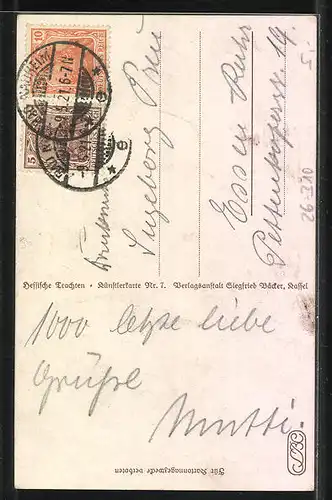 10
5
BAD NAUHEIM
21.6-7N
Ingeborg Preu
Essen Ruhr
Pettenkoferstr. 19.
26-390
Hessische Trachten • Künstlerkarte Nr. 7. Verlagsanstalt Siegfried Bäcker, Kassel
1000 letzte liebe
Grüße
Mutti.
Für Kartonnagezwecke verboten